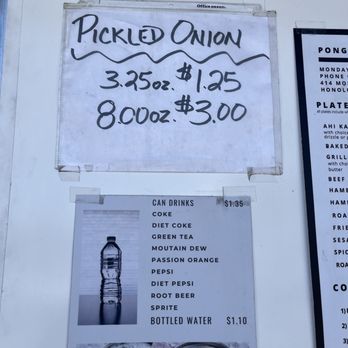 Office DEPOT
PICKLED ONION
3.25oz. $1.25
8.00oz. $3.00
CAN DRINKS $1.35
COKE
DIET COKE
GREEN TEA
MOUTAIN DEW
PASSION ORANGE
PEPSI
DIET PEPSI
ROOT BEER
SPRITE
BOTTLED WATER $1.10
PONG
MONDAY
PHONE
414 MO
HONOL
PLATE
AHI KA
BAKED
GRILL
butter
BEEF
HAM
HAMB
ROA
FRIE
SESA
SPIC
ROA
CO
1)
2)
3)